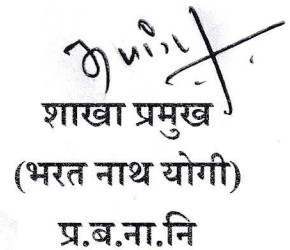 शाखा प्रमुख
(भरत नाथ योगी)
प्र.ब.ना.नि